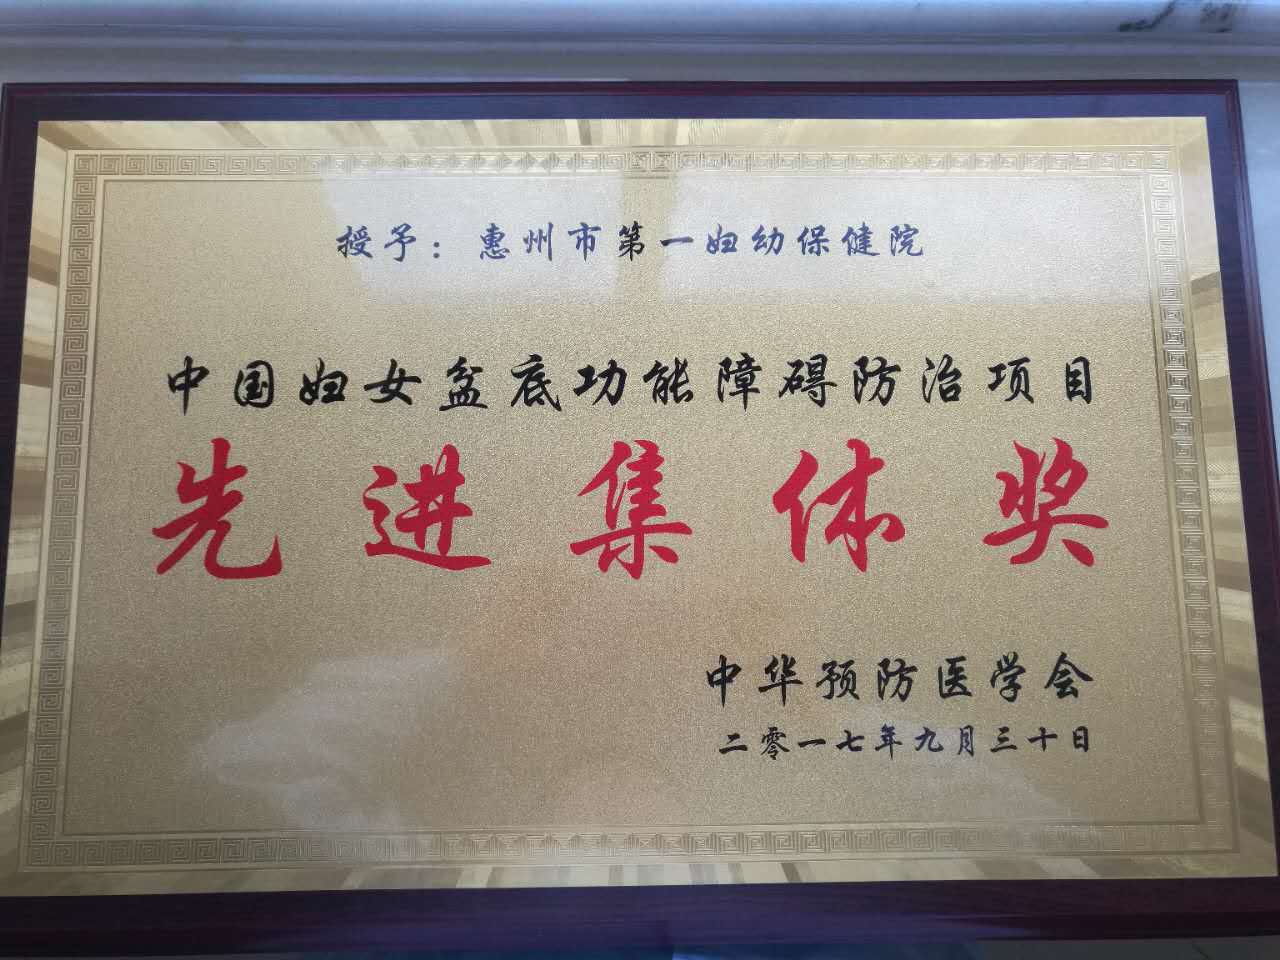 授予：惠州市第一妇幼保健院
中国妇女盆底功能障碍防治项目
先进集体奖
中华预防医学会
二零一七年九月三十日